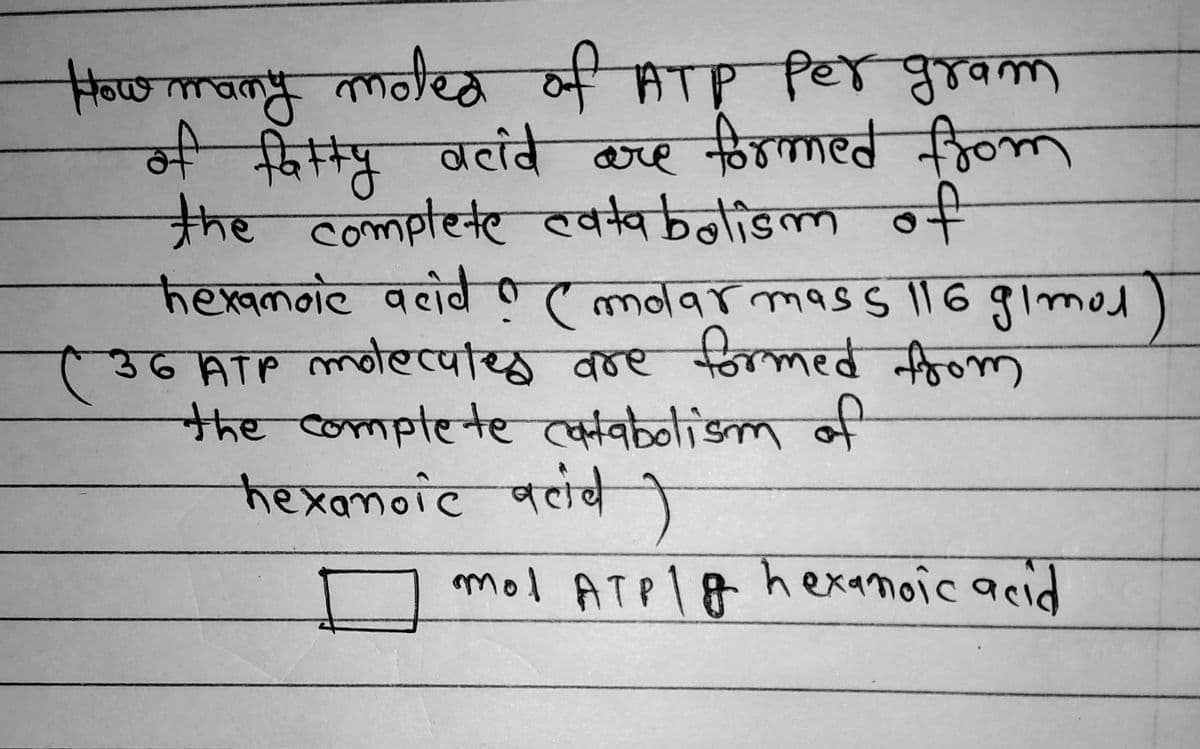 How many moles of ATP Per gram
of fatty acid are formed from
the complete catabolism of
hexanoic acid ? ( molar mass 116 g/mol )
( 36 ATP molecules are formed from
the complete catabolism of
hexanoic acid )
mol ATP / g hexanoic acid